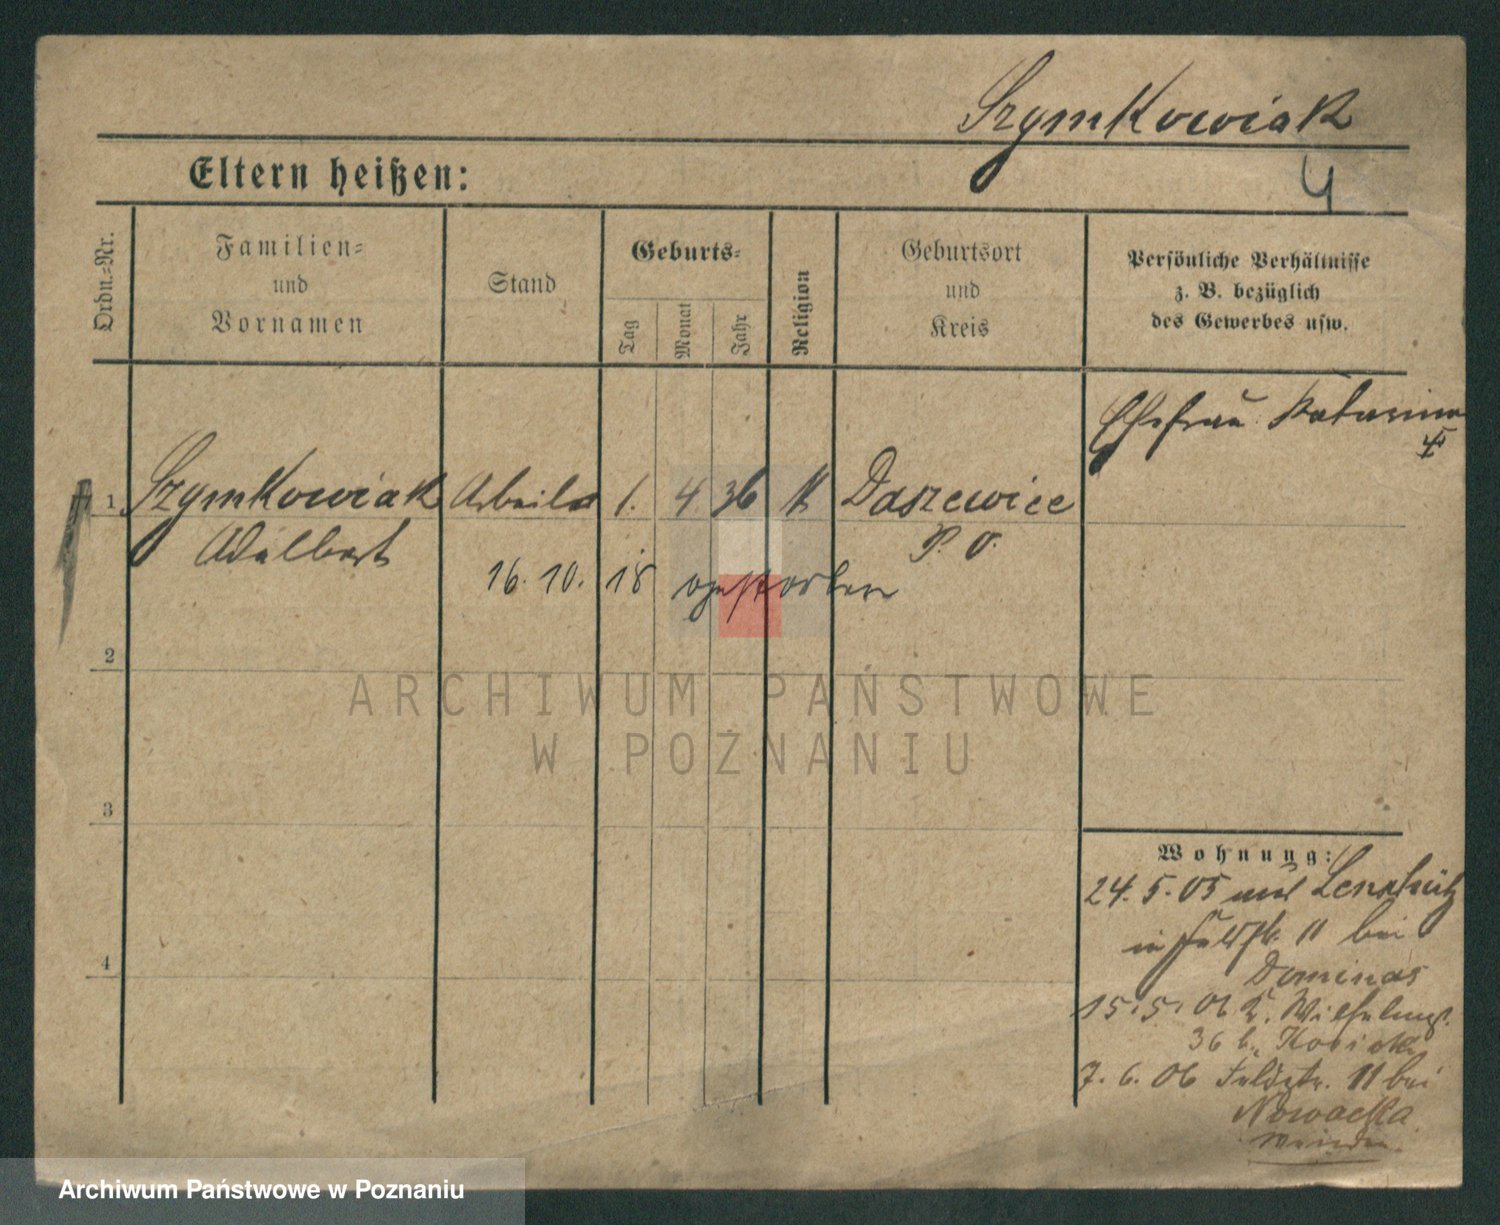 Szymkowiak
4
Eltern heißen:
Ordn.-Nr.
Familien-
und
Vornamen
Stand
Geburts-
Tag
Monat
Jahr
Religion
Geburtsort
und
Kreis
Persönliche Verhältnisse
z. B. bezüglich
des Gewerbes usw.
Ehefrau Katarina
1 Szymkowiak Arbeiter 1. 4. 36 K Daszewice
Adalbert P. O.
16. 10. 18 gestorben
2
3
4
Wohnung:
24. 5. 05 aus
in Feldstr. 11 bei
Dominas
15. 5. 06
36 b.
7. 6. 06 Feldstr. 11 bei
Nowacka
ARCHIWUM PAŃSTWOWE
W POZNANIU
Archiwum Państwowe w Poznaniu